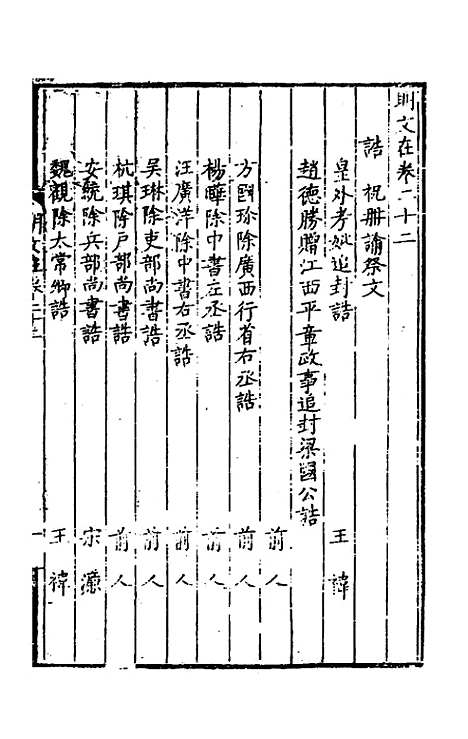 明文在卷二十二
誥 祝冊誦祭文
皇外考妣追封誥 王禕
趙德勝贈江西平章政事追封梁國公誥 前人
方國珍除廣西行省右丞誥 前人
楊 除中書左丞誥 前人
汪廣洋除中書右丞誥 前人
吳琳除吏部尚書誥 前人
杭琪除戶部尚書誥 前人
安統除兵部尚書誥 宋濂
魏觀除太常卿誥 王禕
明文在卷二十二 一